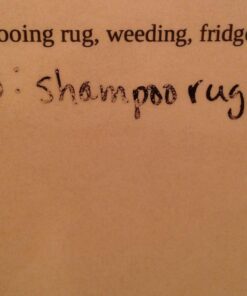 ooing rug, weeding, fridge
: shampoo rug